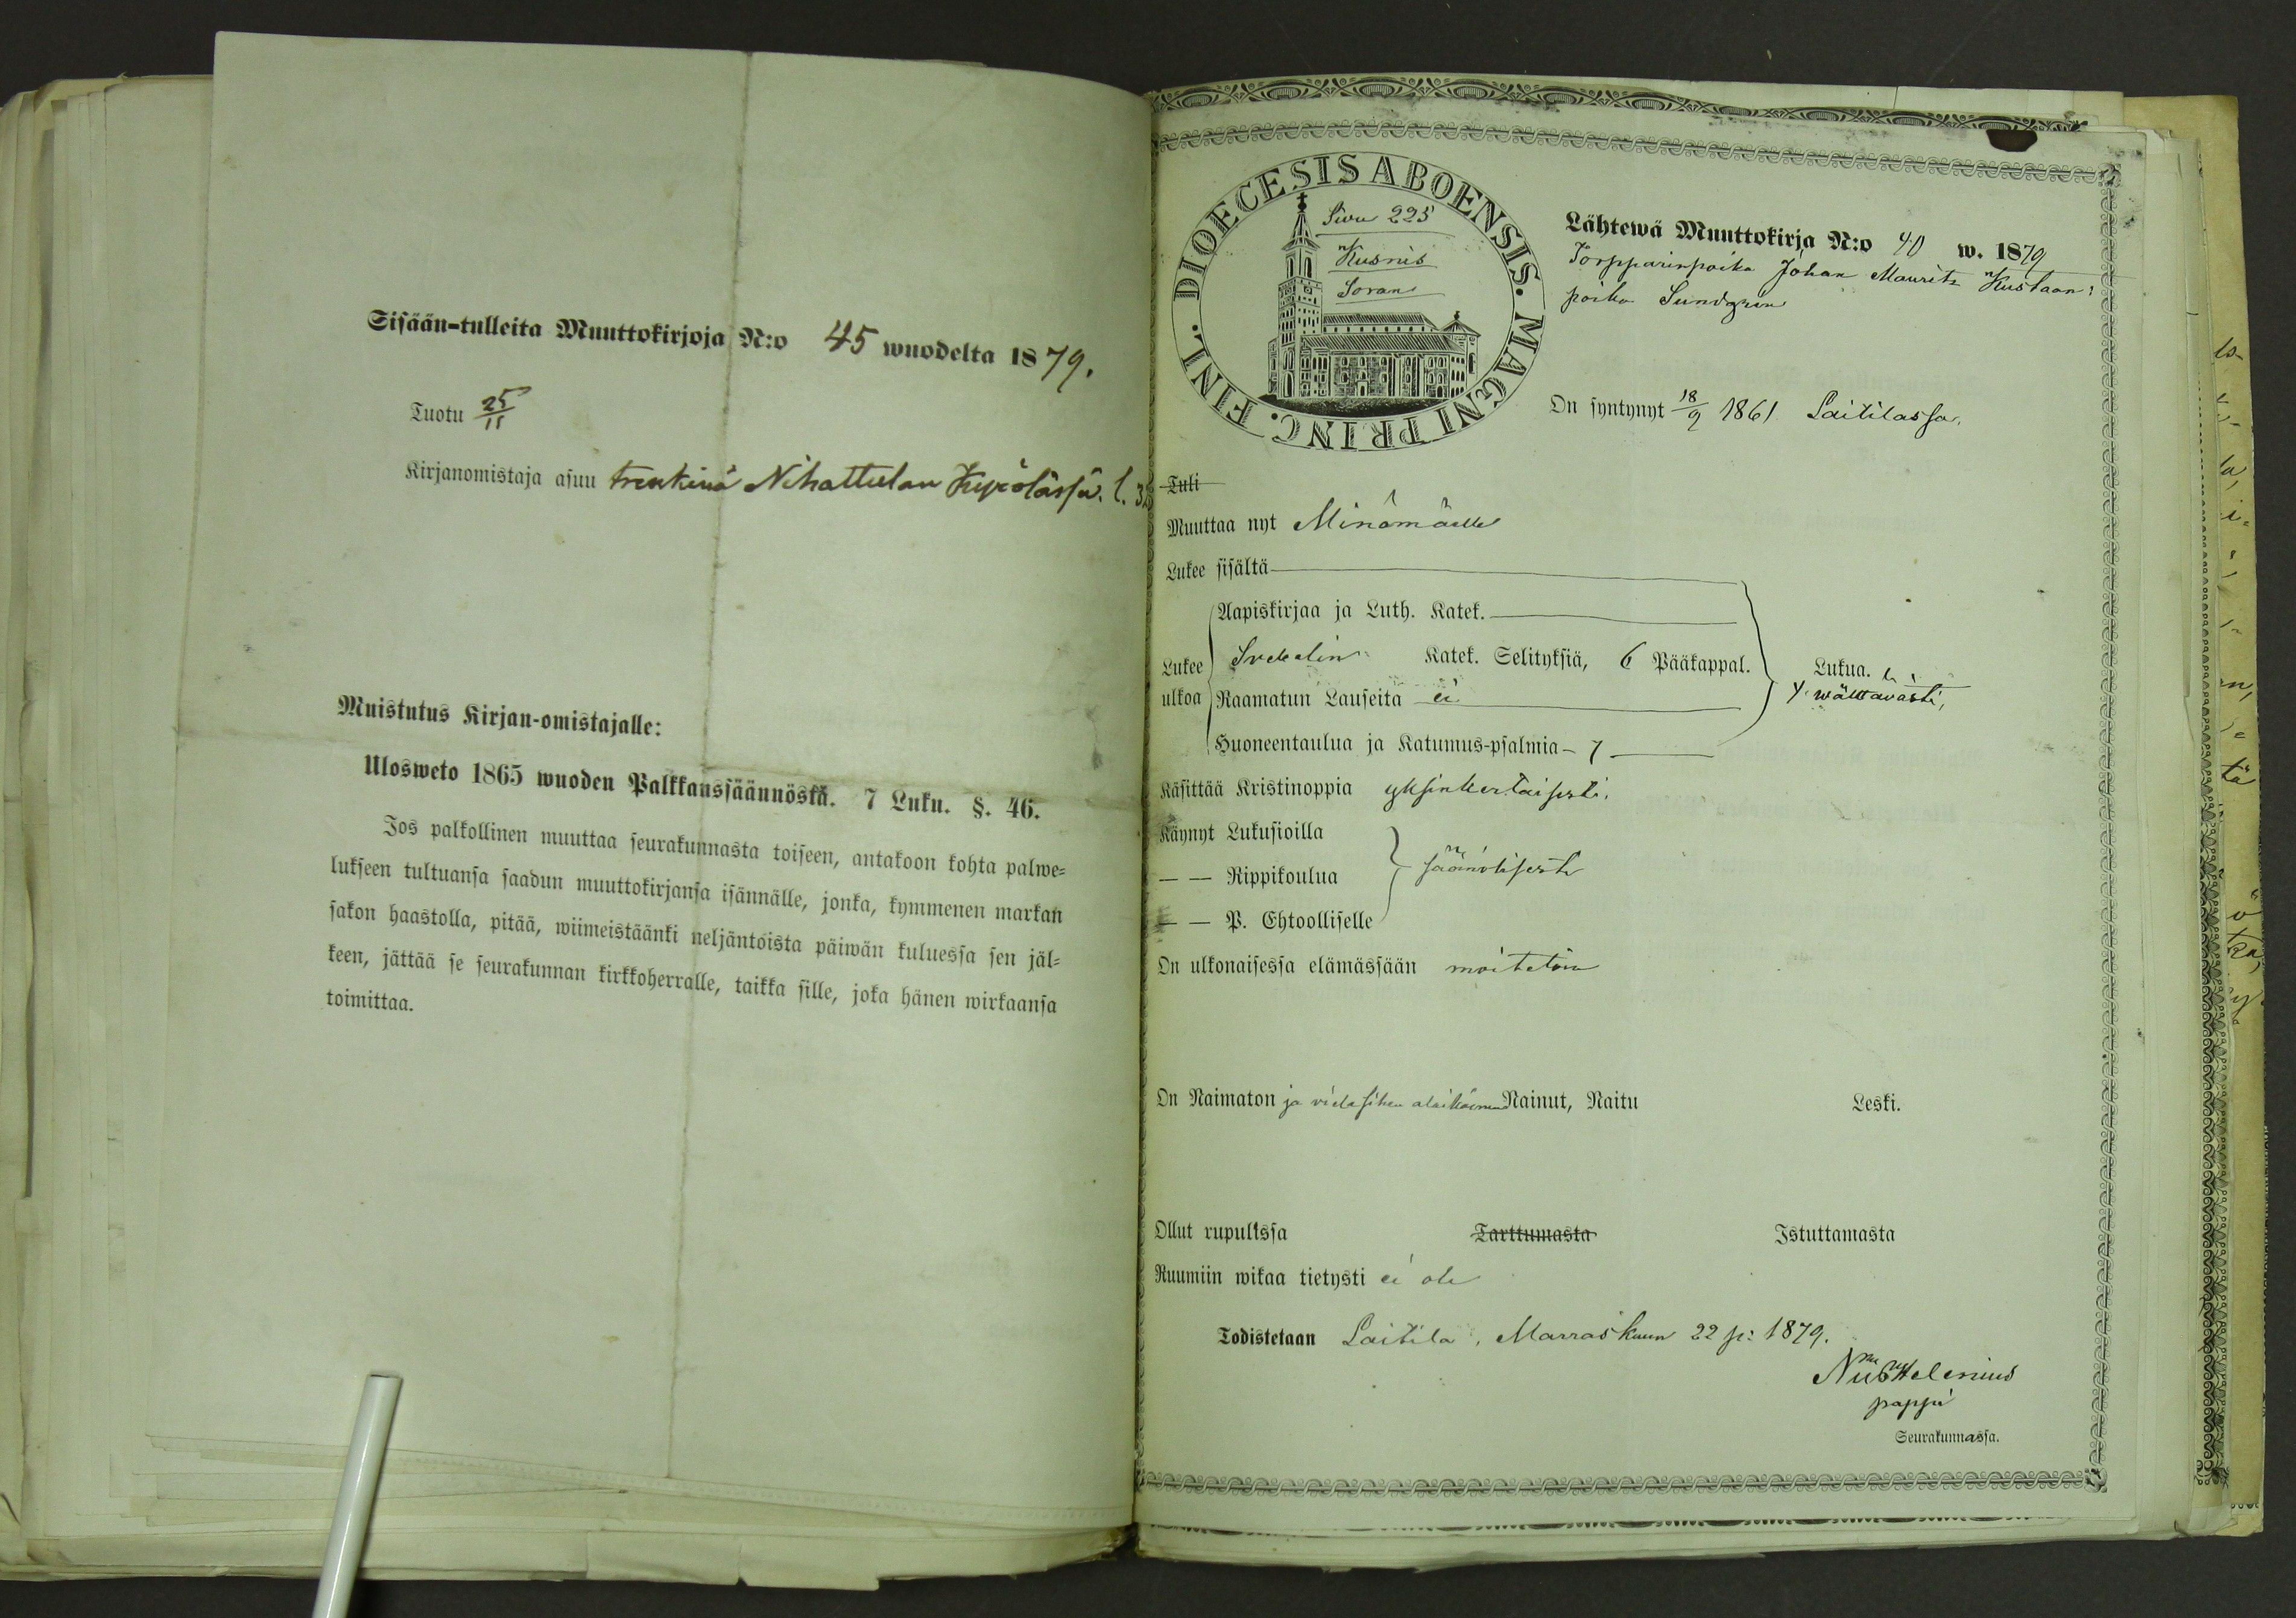 Sisään-tulleita Muuttokirjoja N:o 45 wuodelta 1879.
Tuotu 25/11
Kirjanomistaja asuu trenkinä Nihattulan Kyrölässä. l.
Muistutus Kirjan-omistajalle:
Ulosweto 1865 wuoden Palkkaussäännöskä. 7 Luku. §. 46.
Jos palkollinen muuttaa seurakunnasta toiseen, antakoon kohta palwe=
lukseen tultuansa saadun muuttokirjansa isännälle, jonka, kymmenen markan
sakon haastolla, pitää, wiimeistäänki neljäntoista päiwän kuluessa sen jäl=
keen, jättää se seurakunnan kirkkoherralle, taikka sille, joka hänen wirkaansa
toimittaa.
DIOECESIS ABOENSIS. MAGNI PRINC. FINL.
Sivu 225
Kusnis
Soran
Lähtewä Muuttokirja N:o 40 w. 1879
Torpparinpoika Johan Maurits Kustaan:
poika Sundgren
On syntynyt 18/9 1861 Laitilassa.
Tuli
Muuttaa nyt Minämäelle
Lukee sisältä
Aapiskirjaa ja Luth. Katek.
Lukee ulkoa
Svebelin Katek. Selityksiä, 6 Pääkappal.
Lukua.
Raamatun Lauseita ei
wälttävästi,
Huoneentaulua ja Katumus-psalmia – 7
Käsittää Kristinoppia yksinkertaisesti.
Käynyt Lukusioilla
— — Rippikoulua
säännöllisesti
— — P. Ehtoolliselle
On ulkonaisessa elämässään moitetoin
On Naimaton ja vielä siihen alaikäinen Nainut, Naitu Leski.
Ollut rupulissa Tarttumasta Istuttamasta
Ruumiin wikaa tietysti ei ole
Todistetaan Laitila, Marraskuun 22 p: 1879.
Helenius
pappi
Seurakunnassa.